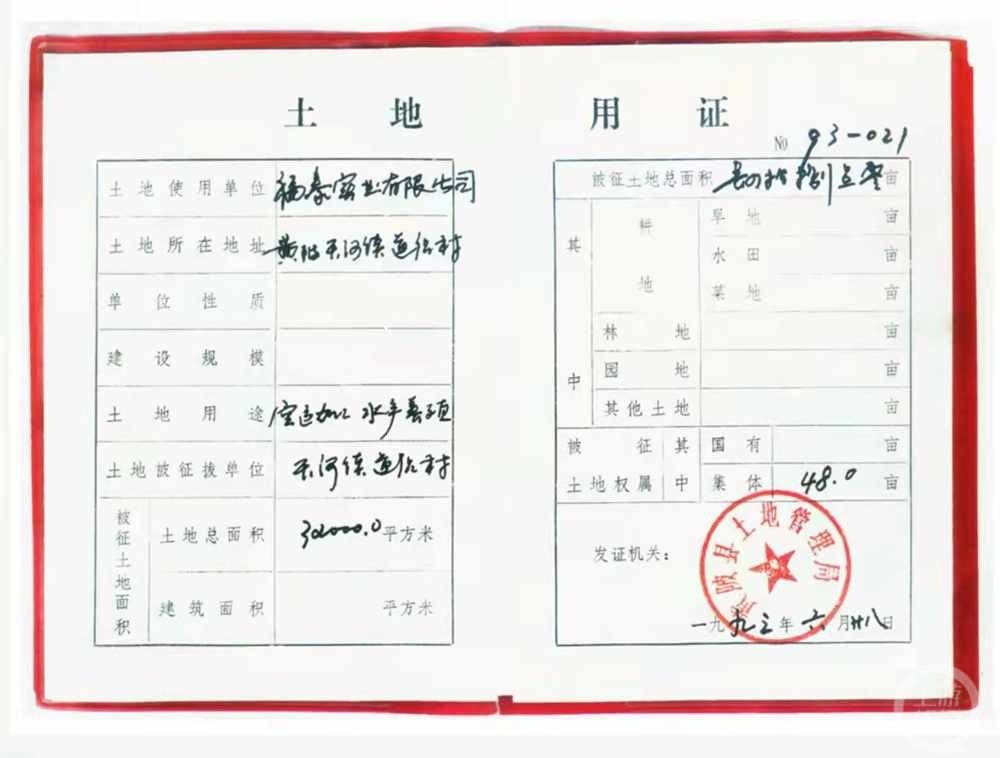 土地用证
No 93-021
土地使用单位 福泰实业有限公司
土地所在地址 黄陂天河镇道伦村
单位性质
建设规模
土地用途 水产养殖
土地被征拨单位 天河镇道伦村
被征土地面积
土地总面积 平方米
建筑面积 平方米
被征土地总面积 肆拾捌点零亩
其中
耕地
旱地 亩
水田 亩
菜地 亩
林地 亩
园地 亩
其他土地 亩
被征土地权属
其中
国有 亩
集体 48.0 亩
发证机关:
黄陂县土地管理局
一九九三年六月廿八日
上游